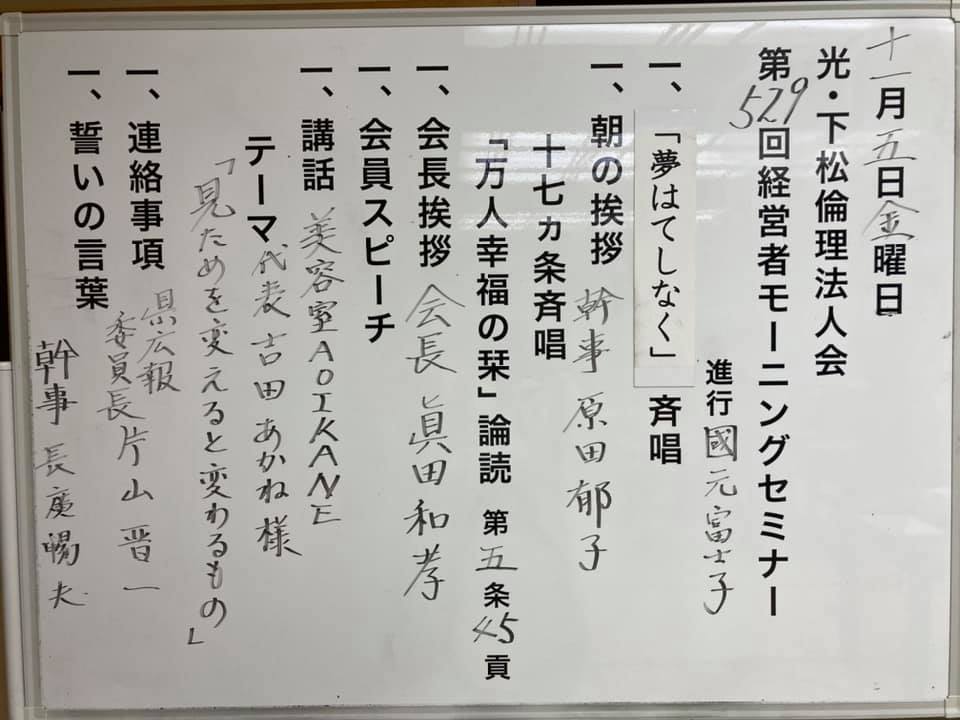 十一月五日金曜日
光・下松倫理法人会
第529回経営者モーニングセミナー
進行 國元富士子
一、「夢はてしなく」斉唱
一、朝の挨拶 幹事 原田郁子
十七ヵ条斉唱
「万人幸福の栞」論読 第五条45貢
一、会長挨拶 会長 眞田和孝
一、会員スピーチ
一、講話 美容室AOIKANE
テーマ 代表 吉田あかね様
「見ためを変えると変わるもの」
一、連絡事項 県広報
委員長 片山晋一
一、誓いの言葉 幹事 長廣暢夫